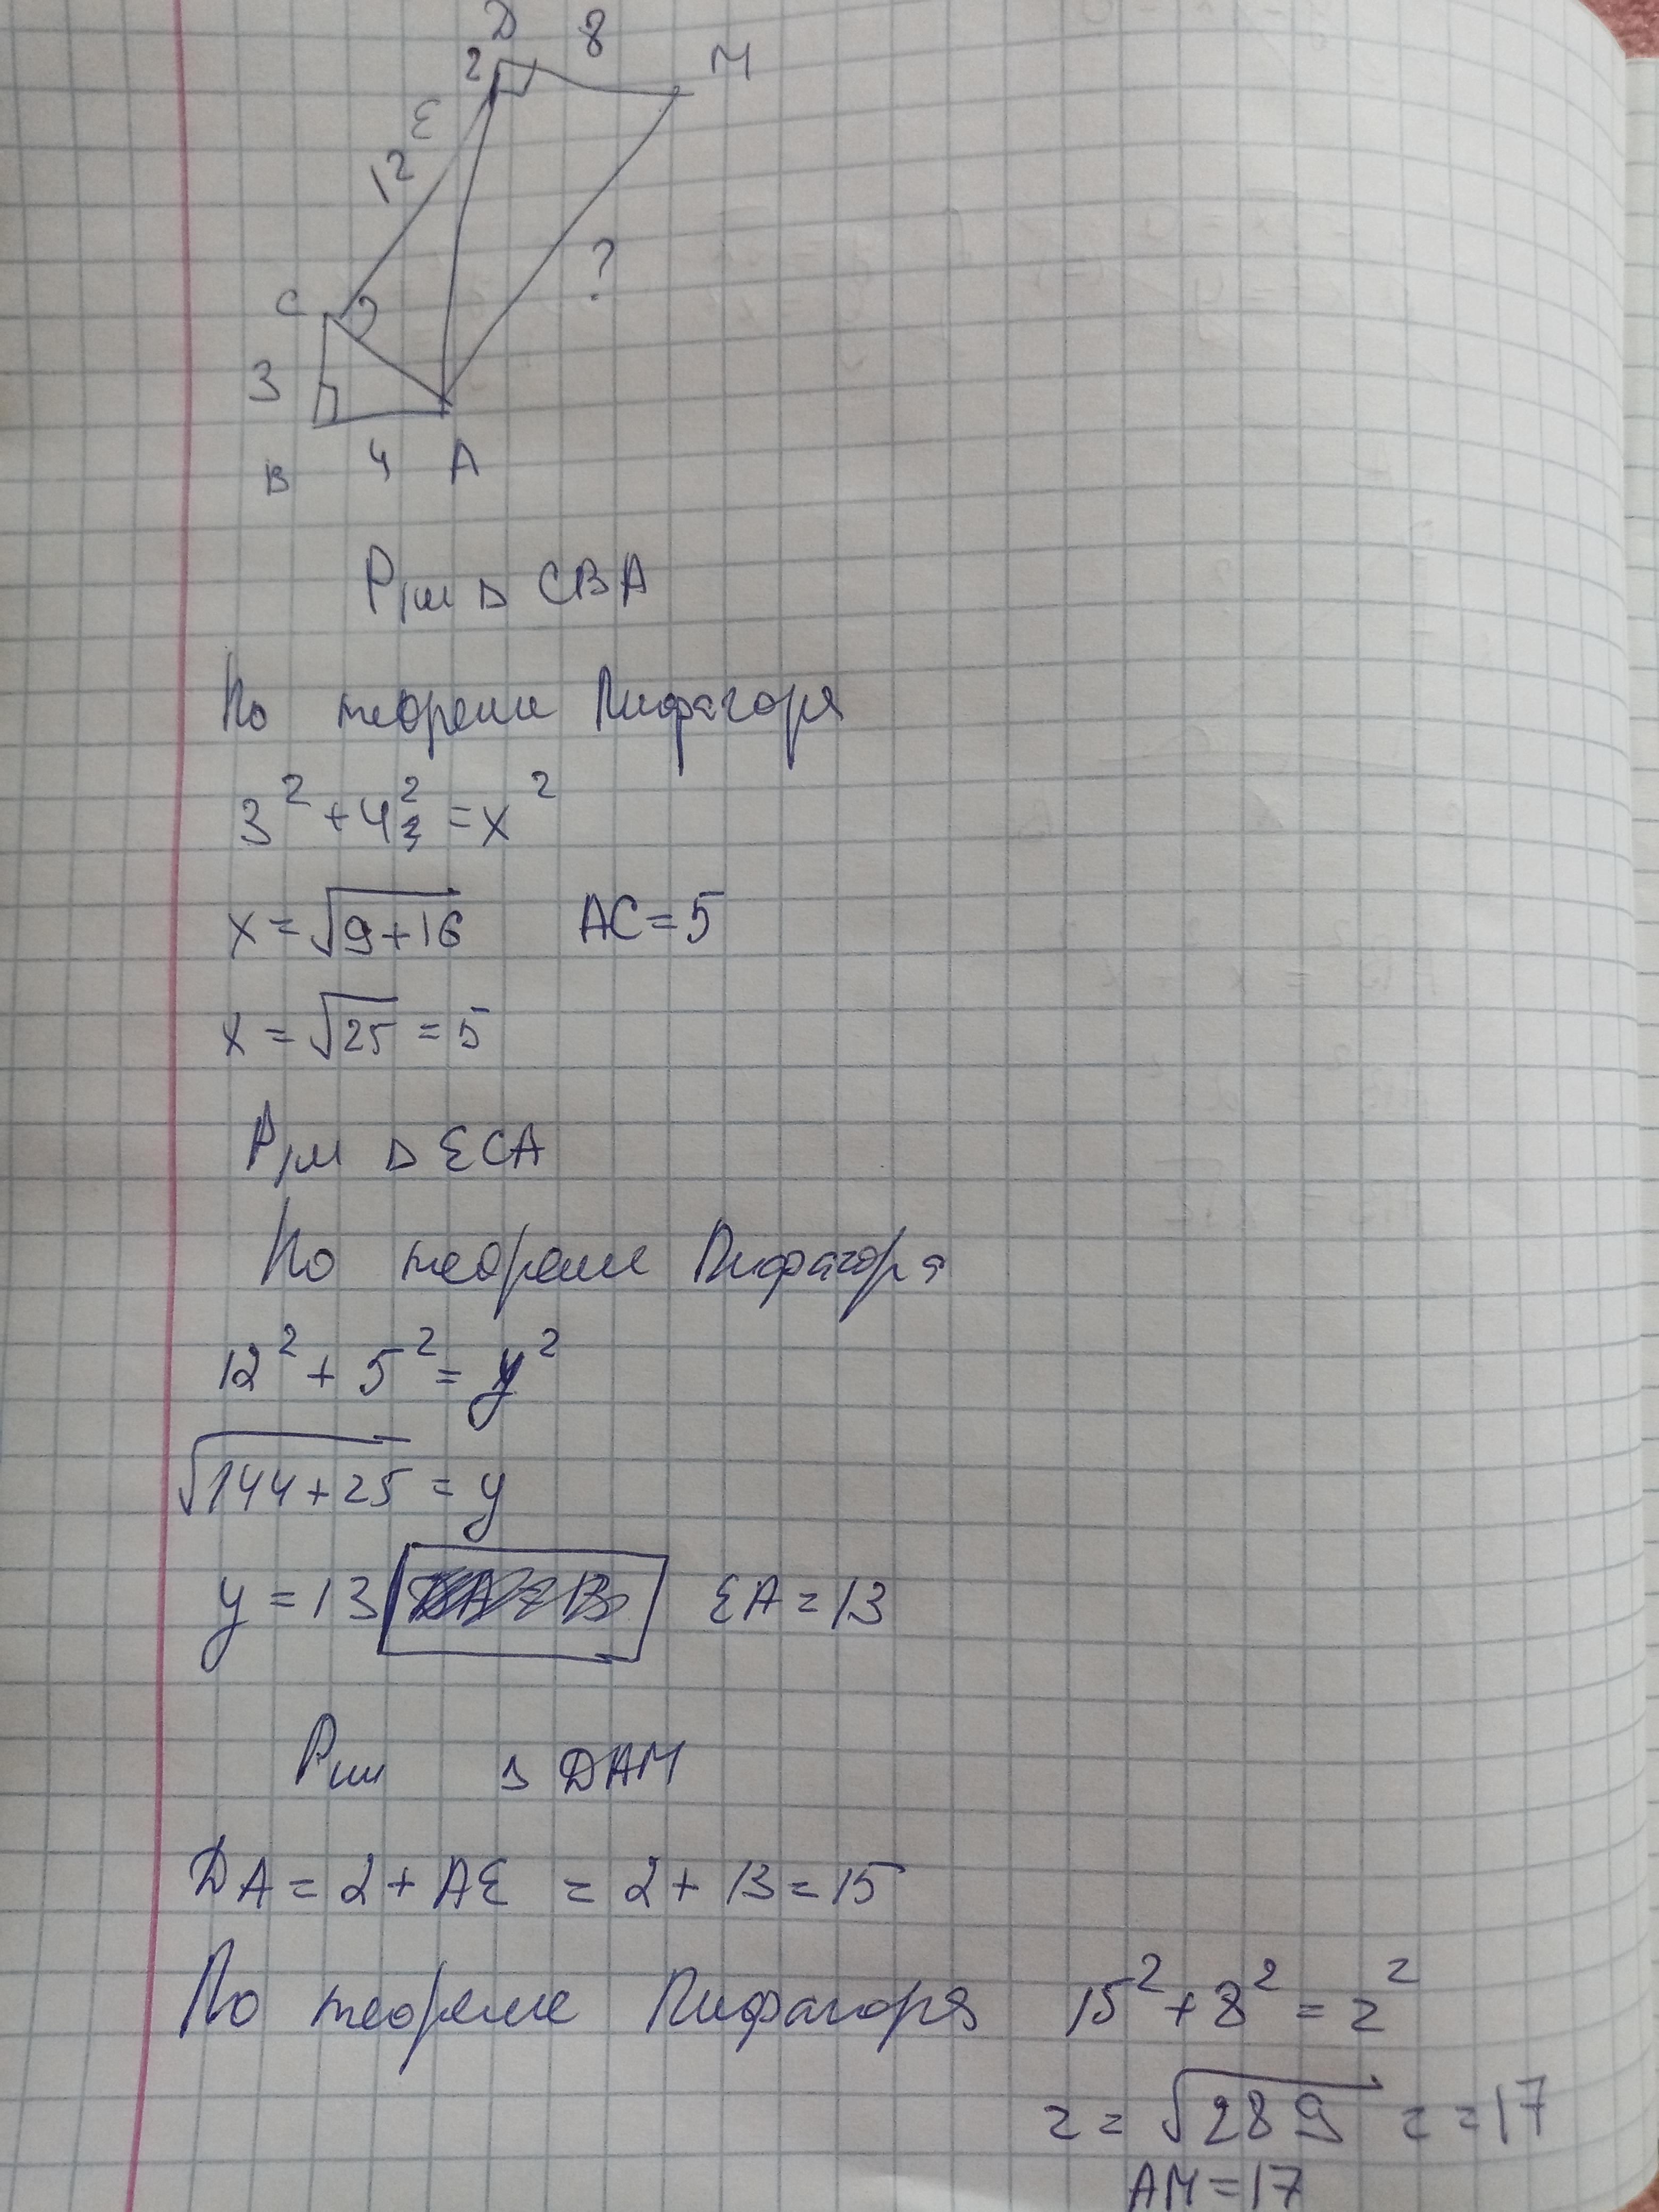 D 8 M
2
E
12
C ?
3
B 4 A
Р/м ▷ СВА
По теореме Пифагоря
3² + 4² = x²
x = √9+16 AC = 5
x = √25 = 5
Р/м ▷ ЕСА
По теореме Пифагоря
12² + 5² = y²
√144+25 = y
y = 13 EA = 13
DAM
DA = 2 + AE = 2 + 13 = 15
По теореме Пифагоря 15² + 8² = z²
z = √289 z = 17
AM = 17